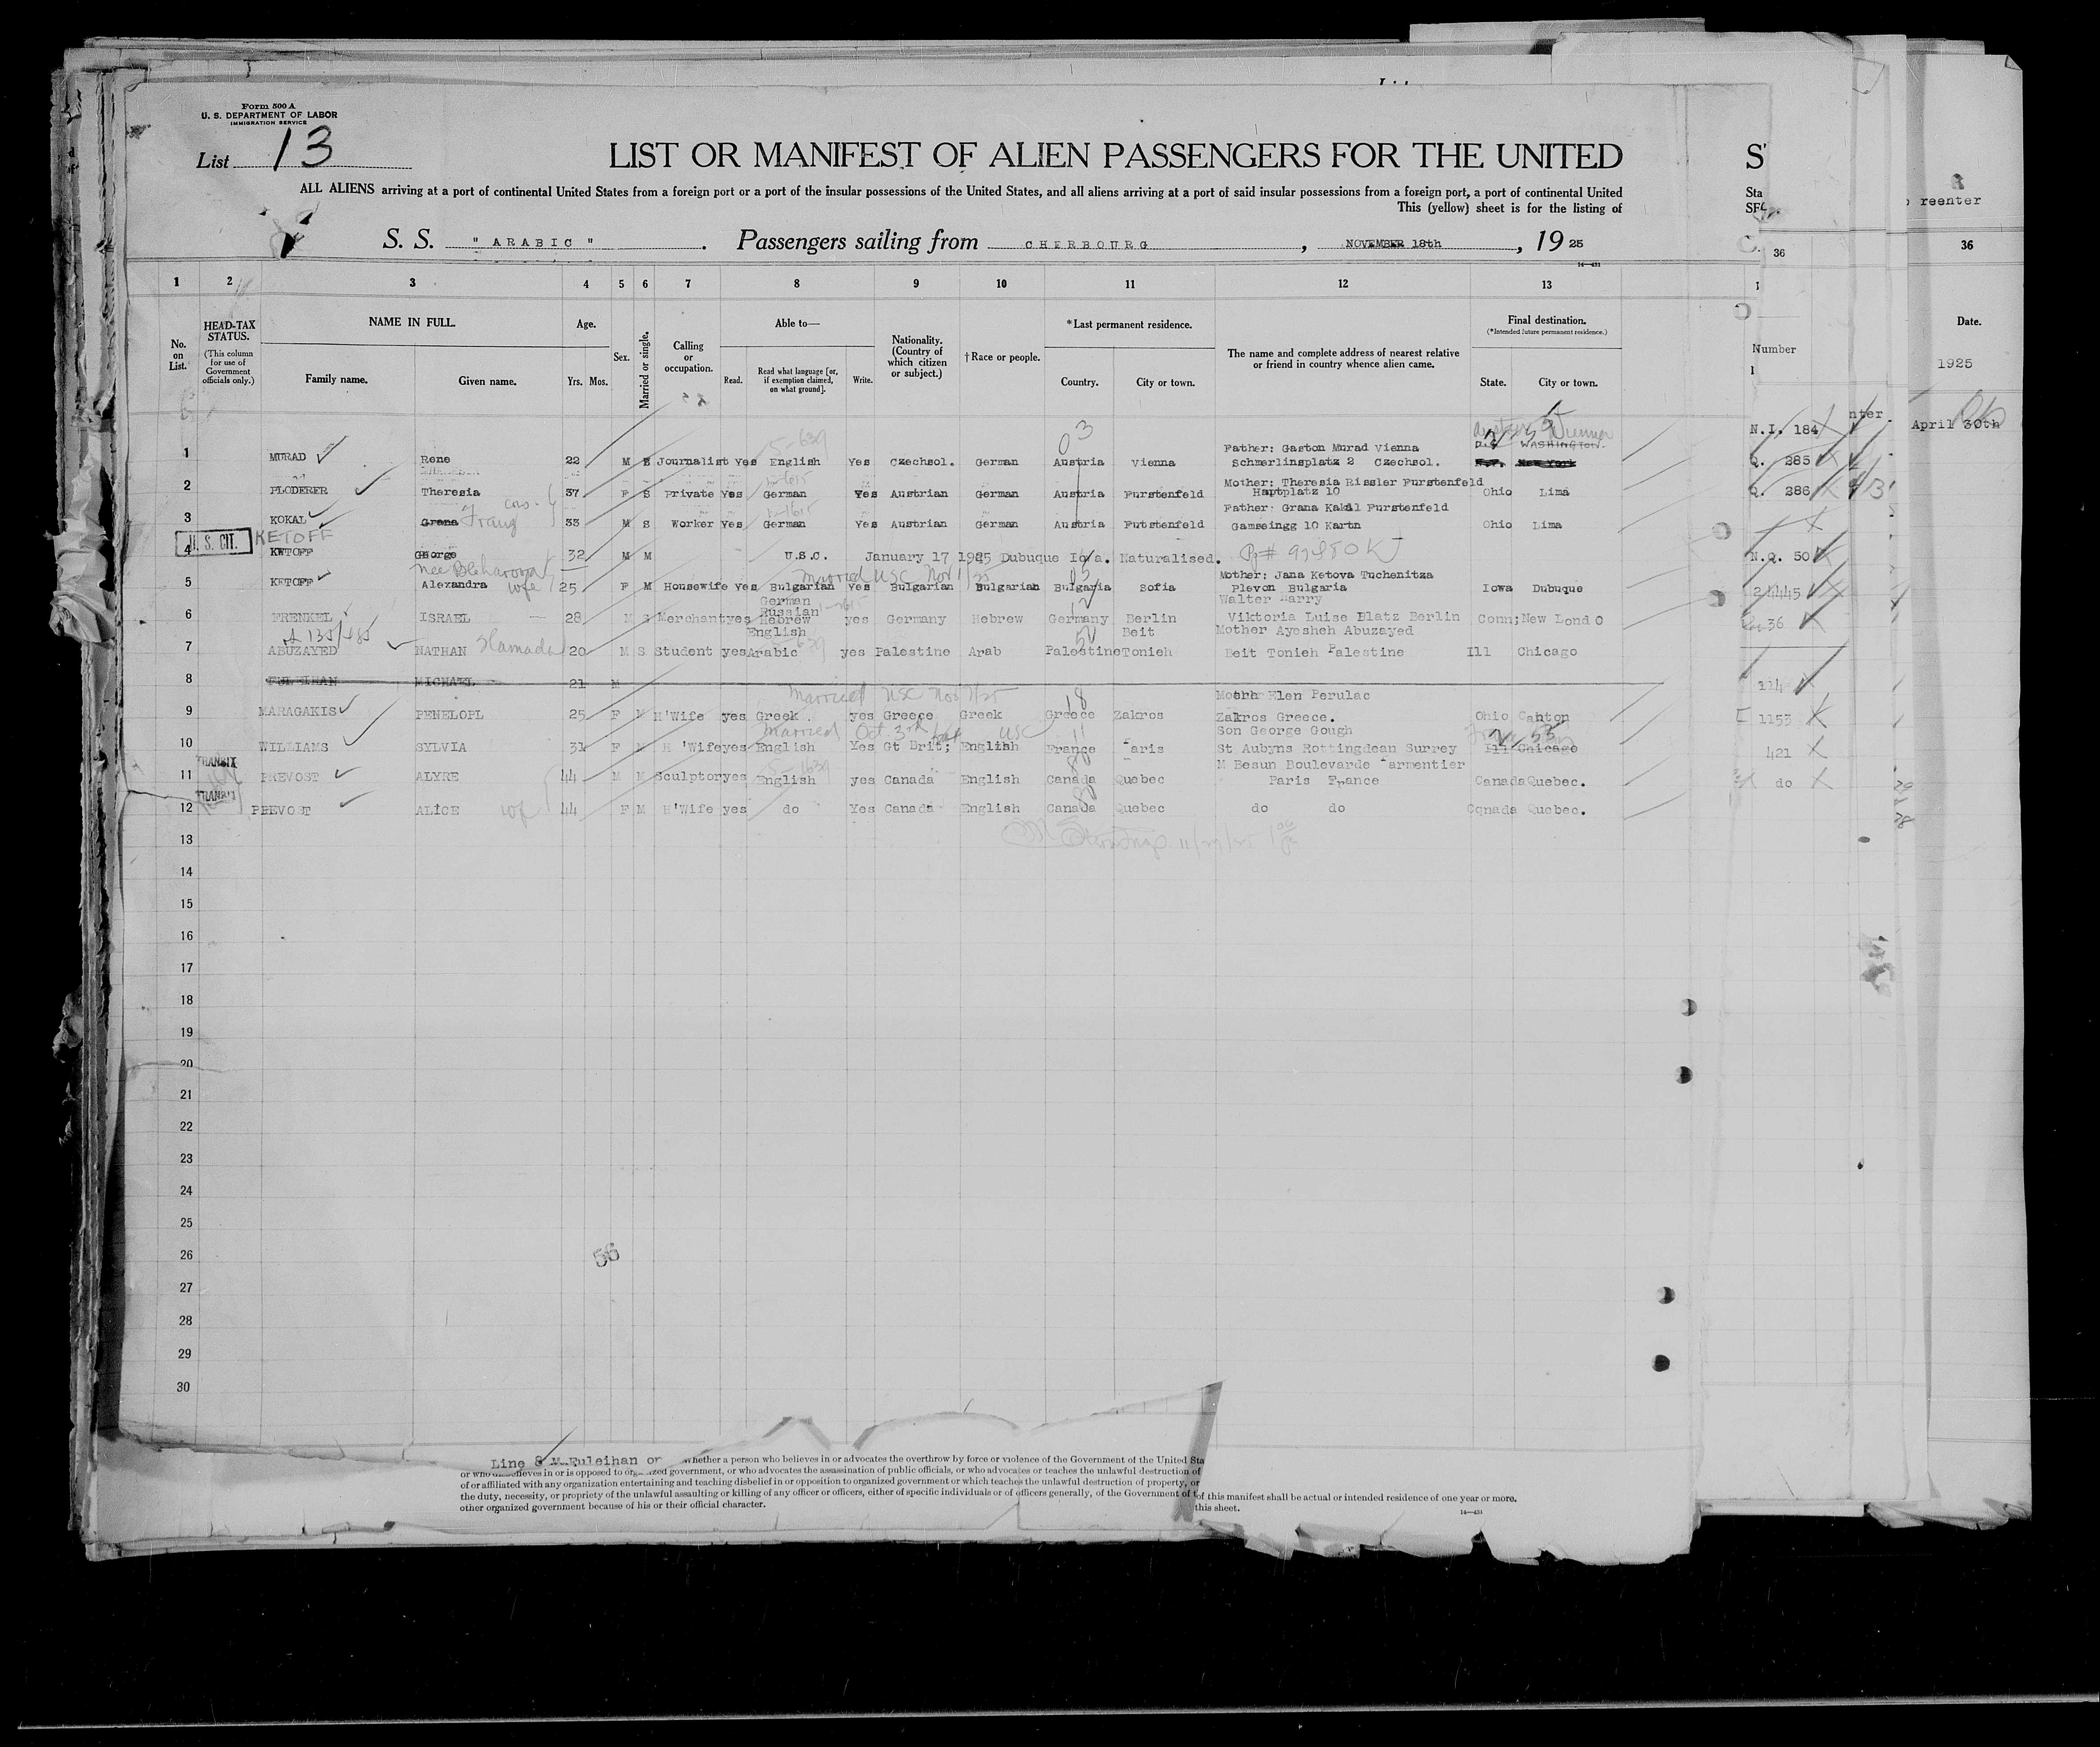 Form 500 A
U. S. DEPARTMENT OF LABOR
IMMIGRATION SERVICE
List 13
LIST OR MANIFEST OF ALIEN PASSENGERS FOR THE UNITED
ALL ALIENS arriving at a port of continental United States from a foreign port or a port of the insular possessions of the United States, and all aliens arriving at a port of said insular possessions from a foreign port, a port of continental United
This (yellow) sheet is for the listing of
S. S. " ARABIC " . Passengers sailing from CHERBOURG , NOVEMBER 18th , 19 25
1 2 3 4 5 6 7 8 9 10 11 12 13
No. on List.
HEAD-TAX STATUS.
(This column for use of Government officials only.)
NAME IN FULL.
Family name. Given name.
Age.
Yrs. Mos.
Sex.
Married or single.
Calling or occupation.
Able to—
Read. Read what language [or, if exemption claimed, on what ground]. Write.
Nationality. (Country of which citizen or subject.)
†Race or people.
*Last permanent residence.
Country. City or town.
The name and complete address of nearest relative or friend in country whence alien came.
Final destination.
(*Intended future permanent residence.)
State. City or town.
Father: Gaston Murad Vienna WASHINGTON.
1 MURAD Rene 22 M S Journalist Yes English Yes Czechsol. German Austria Vienna Schmerlinsplatz 2 Czechsol. N.Y. New York
Mother: Theresia Rissler Furstenfeld
2 PLODERER Theresia 37 F S Private Yes German Yes Austrian German Austria Furstenfeld Hauptplatz 10 Ohio Lima
Father: Grana Kakil Furstenfeld
3 KOKAL Grana Franz 33 M S Worker Yes German Yes Austrian German Austria Futstenfeld Gamseingg 10 Kartn Ohio Lima
U. S. CIT. KETOFF
4 KETOFF George 32 M M U.S.C. January 17 1925 Dubuque Iowa. Naturalised.
Married USC Nov 1/25 Mother: Jana Ketova Tuchenitza
5 KETOFF Alexandra wife 25 F M Housewife Yes Bulgarian Yes Bulgarian Bulgarian Bulgaria Sofia Plevon Bulgaria Iowa Dubuque
German
Russian Walter Harry
6 FRENKEL ISRAEL 28 M S Merchant yes Hebrew yes Germany Hebrew Germany Berlin Viktoria Luise Platz Berlin Conn; New Lond O
English Beit Mother Ayesheh Abuzayed
7 ABUZAYED NATHAN Hamada 20 M S Student yes Arabic yes Palestine Arab Palestine Tonieh Beit Tonieh Palestine Ill Chicago
8 FULEIHAN MICHAEL 21 M
Married USC Nov 1/25 Mothr Elen Perulac
9 MARAGAKIS PENELOPL 25 F M H'Wife yes Greek yes Greece Greek Greece Zakros Zakros Greece. Ohio Canton
Married Oct. 3rd USC Son George Gough
10 WILLIAMS SYLVIA 31 F M H 'Wife yes English Yes Gt Brit; English France Paris St Aubyns Rottingdean Surrey Ill Chicago
TRANSIT M Besun Boulevarde Parmentier
11 PREVOST ALYRE 44 M M Sculptor yes English yes Canada English Canada Quebec Paris France Canada Quebec.
TRANSIT
12 PREVOST ALICE wife 44 F M H'Wife yes do Yes Canada English Canada Quebec do do Cqnada Quebec.
13
14
15
16
17
18
19
20
21
22
23
24
25
26
56
27
28
29
30
Line 8 M.Fuleihan or
whether a person who believes in or advocates the overthrow by force or violence of the Government of the United Sta
or who disbelieves in or is opposed to organized government, or who advocates the assassination of public officials, or who advocates or teaches the unlawful destruction of
of or affiliated with any organization entertaining and teaching disbelief in or opposition to organized government or which teaches the unlawful destruction of property, or
the duty, necessity, or propriety of the unlawful assaulting or killing of any officer or officers, either of specific individuals or of officers generally, of the Government of t
other organized government because of his or their official character.
of this manifest shall be actual or intended residence of one year or more.
this sheet.
14—431
Sta
36
Number
N.I. 184
Q. 285
Q. 286
N.Q. 50
24445
36
114
1153
421
do
reenter
36
Date.
1925
April 30th